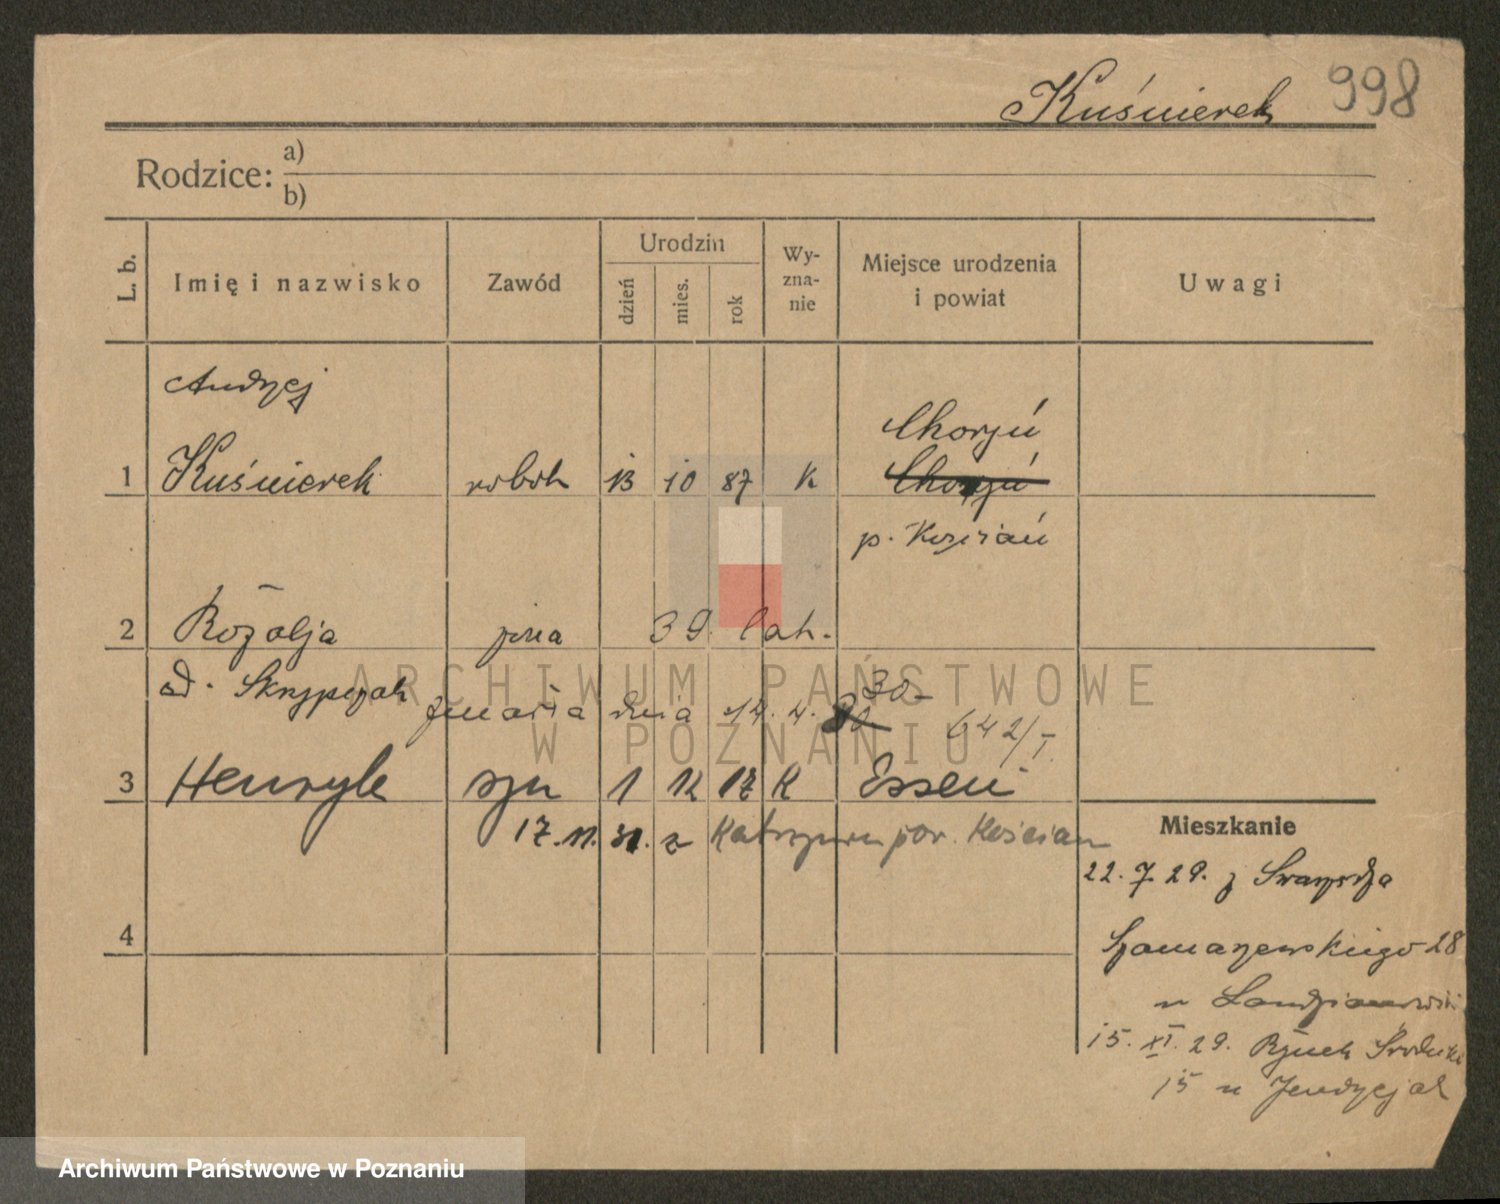 Kuśnierek 998
Rodzice: a)
b)
L. b.
Imię i nazwisko
Zawód
Urodzin
dzień
mies.
rok
Wy-
zna-
nie
Miejsce urodzenia
i powiat
Uwagi
Andrzej
Choryń
1 Kuśnierek robotn 13 10 87 K Choryń
p. Kościań
2 Rozalja żona 39 lat.
od. Skrzypczak
zmarła dnia 14. 4. 30-
642/I.
3 Henryk syn 1 12 17 K Essen
17. 11. 31. z pow. Kościan
Mieszkanie
22. 7. 29. z Swarzędza
4
Szamarzewskiego 28
u
15. XI. 29. Rynek Śródecki
15 u Jendrzejak
ARCHIWUM PAŃSTWOWE
W POZNANIU
Archiwum Państwowe w Poznaniu